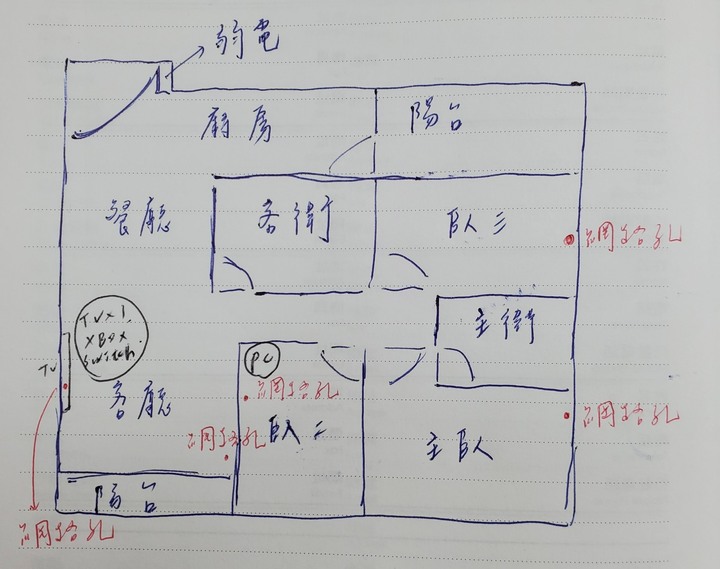 弱電
廚房
陽台
餐廳
客衛
臥三
網路孔
TV×1
XBOX
Switch.
TV
主衛
PC
客廳
網路孔
網路孔
網路孔
臥二
主臥
陽台
網路孔